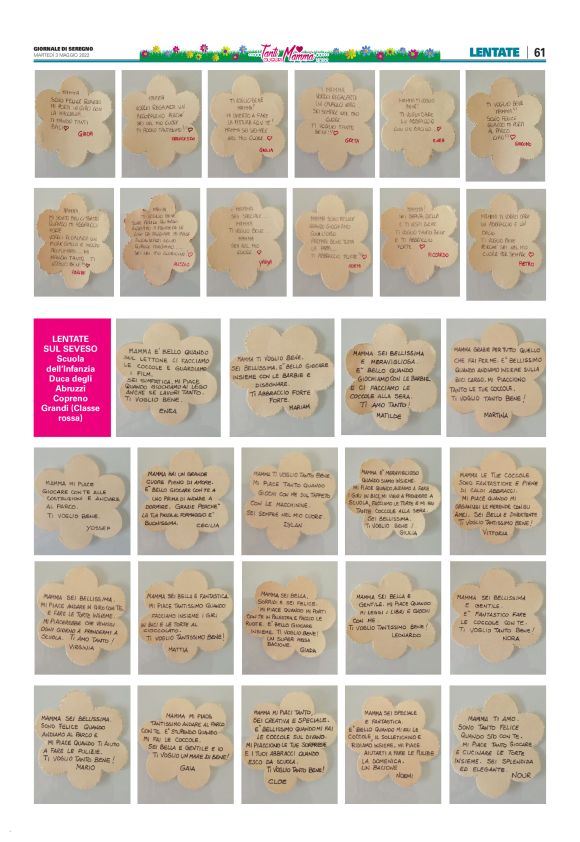 GIORNALE DI SEREGNO
MARTEDÌ 3 MAGGIO 2022
Tanti
AUGURI
Mamma
LENTATE
61
MAMMA
SONO FELICE QUANDO
MI PORTI IN GIRO CON
LA MACCHINA
TI MANDO TANTI
BACI
GIADA
MAMMA
VORREI REGALARTI UN
FRANCESCO
TI VOGLIO BENE
MAMMA
MI DIVERTO A FARE
LA PITTURA CON TE!
MAMMA SEI SEMPRE
NEL MIO CUORE
GIULIA
MAMMA
VORREI REGALARTI
UN CAVALLO VERO
SEI SEMPRE NEL MIO
CUORE
TI VOGLIO TANTO
BENE!!
GRETA
MAMMA TI VOGLIO
BENE!
TI VOGLIO DARE
UN ABBRACCIO
CON UN BACINO
TI VOGLIO BENE
MAMMA!!
SONO FELICE
QUANDO MI PORTI
AL PARCO
CIAO!!
MAMMA
TI VOGLIO BENE
MAMMA
SEI SPECIALE
MAMMA
TI VOGLIO BENE
MAMMA
SEI NEL MIO
CUORE
MAMMA SONO FELICE
QUANDO GIOCHIAMO
NOEMI
MAMMA!
SEI BRAVA BELLA
E TI VESTI BENE
TI VOGLIO BENE
E TI ABBRACCIO
FORTE
RICCARDO
MAMMA
TI VOGLIO DARE
UN ABBRACCIO E UN
BACIO
TI VOGLIO BENE
PERCHÉ SEI NEL MIO
CUORE PER SEMPRE
PIETRO
LENTATE
SUL SEVESO
Scuola
dell'Infanzia
Duca degli
Abruzzi
Copreno
Grandi (Classe
rossa)
MAMMA E' BELLO QUANDO
SUL LETTONE CI FACCIAMO
LE COCCOLE E GUARDIAMO
I FILM.
SEI SIMPATICA. MI PIACE
QUANDO GIOCHIAMO AI LEGO
ANCHE SE LAVORI TANTO.
TI VOGLIO BENE.
ENEA
MAMMA TI VOGLIO BENE.
SEI BELLISSIMA. E' BELLO GIOCARE
INSIEME CON LE BARBIE E
DISEGNARE.
TI ABBRACCIO FORTE
FORTE.
MARIAM
MAMMA SEI BELLISSIMA
E MERAVIGLIOSA.
E' BELLO QUANDO
GIOCHIAMO CON LE BARBIE,
E CI FACCIAMO LE
COCCOLE ALLA SERA.
TI AMO TANTO!
MATILDE
MAMMA GRAZIE PER TUTTO QUELLO
CHE FAI PER ME. E' BELLISSIMO
QUANDO ANDIAMO INSIEME SULLA
BICI CARGO. MI PIACCIONO
TANTO LE TUE COCCOLE.
TI VOGLIO TANTO BENE!
MARTINA
MAMMA MI PIACE
GIOCARE CON TE ALLE
COSTRUZIONI E ANDARE
AL PARCO.
TI VOGLIO BENE.
YOSSEF
MAMMA HAI UN GRANDE
CUORE PIENO DI AMORE.
E' BELLO GIOCARE CON TE A
UNO PRIMA DI ANDARE A
DORMIRE. GRAZIE PERCHE'
LA TUA PASTA AL FORMAGGIO E'
BUONISSIMA.
CECILIA
MAMMA TI VOGLIO TANTO BENE.
MI PIACE TANTO QUANDO
GIOCHI CON ME SUL TAPPETO
CON LE MACCHININE.
SEI SEMPRE NEL MIO CUORE
DYLAN
MAMMA E' MERAVIGLIOSO
QUANDO SIAMO INSIEME.
MI PIACE QUANDO ANDIAMO A FARE
GIRI IN BICI, MI VIENI A PRENDERE A
SCUOLA, FACCIAMO LE TORTE E MI FAI
TANTE COCCOLE ALLA SERA.
SEI BELLISSIMA.
TI VOGLIO BENE!
GIULIA
MAMMA LE TUE COCCOLE
SONO FANTASTICHE E PIENE
DI CALDI ABBRACCI.
MI PIACE QUANDO MI
ORGANIZZI LE MERENDE CON GLI
AMICI. SEI BELLA E DIVERTENTE
TI VOGLIO TANTISSIMO BENE!
VITTORIA
MAMMA SEI BELLISSIMA.
MI PIACE ANDARE IN GIRO CON TE,
E FARE LE TORTE INSIEME.
MI PIACEREBBE CHE VENISSI
OGNI GIORNO A PRENDERMI A
SCUOLA. TI AMO TANTO!
VIRGINIA
MAMMA SEI BELLA E FANTASTICA.
MI PIACE TANTISSIMO QUANDO
FACCIAMO INSIEME I GIRI
IN BICI E LE TORTE AL
CIOCCOLATO.
TI VOGLIO TANTISSIMO BENE!
MATTIA
MAMMA SEI BELLA,
SORRIDI E SEI FELICE.
MI PIACE QUANDO MI PORTI
CON TE IN PALESTRA E FACCIO LE
RUOTE. E' BELLO GIOCARE
INSIEME. TI VOGLIO BENE!
UN SUPER MEGA
BACIONE.
GIADA
MAMMA SEI BELLA E
GENTILE. MI PIACE QUANDO
MI LEGGI I LIBRI E GIOCHI
CON ME
TI VOGLIO TANTISSIMO BENE!
LEONARDO
MAMMA SEI BELLISSIMA
E GENTILE.
E' FANTASTICO FARE
LE COCCOLE CON TE.
TI VOGLIO TANTO BENE!
NORA
MAMMA SEI BELLISSIMA.
SONO FELICE QUANDO
ANDIAMO AL PARCO E
MI PIACE QUANDO TI AIUTO
A FARE LE PULIZIE.
TI VOGLIO TANTO BENE!
MARIO
MAMMA MI PIACE
TANTISSIMO ANDARE AL PARCO
CON TE. E' STUPENDO QUANDO
MI FAI LE COCCOLE.
SEI BELLA E GENTILE E IO
TI VOGLIO UN MARE DI BENE!
GAIA
MAMMA MI PIACI TANTO.
SEI CREATIVA E SPECIALE.
E' BELLISSIMO QUANDO MI FAI
LE COCCOLE SUL DIVANO.
MI PIACCIONO LE TUE SORPRESE
E I TUOI ABBRACCI QUANDO
ESCO DA SCUOLA.
TI VOGLIO TANTO BENE!
CLOE
MAMMA SEI SPECIALE
E FANTASTICA.
E' BELLO QUANDO MI FAI LE
COCCOLE, IL SOLLETICO E
RIDIAMO INSIEME. MI PIACE
AIUTARTI A FARE LE PULIZIE
LA DOMENICA.
UN BACIONE
NOEMI
MAMMA TI AMO.
SONO TANTO FELICE
QUANDO STO CON TE.
MI PIACE TANTO GIOCARE
E CUCINARE LE TORTE
INSIEME. SEI SPLENDIDA
ED ELEGANTE.
NOUR